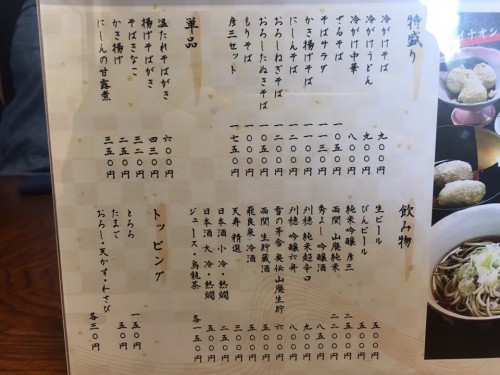 特盛り
冷がけそば 九〇〇円
冷がけうどん 九〇〇円
冷がけ中華 八〇〇円
ざるそば 一〇五〇円
そばサラダ 一一三〇円
かき揚げそば 一一〇〇円
にしんそば 一二〇〇円
おろしねぎそば 一一〇〇円
おろしたぬきそば 一〇五〇円
もりそば 九〇〇円
彦三セット 一七五〇円
単品
温たれそばがき 六〇〇円
揚げそばがき 四三〇円
そばきなこ 三二〇円
かき揚げ 二五〇円
にしんの甘露煮 三五〇円
飲み物
生ビール 五〇〇円
びんビール 五五〇円
純米吟醸 彦三
両関 山廃純米
秀よし 吟醸酒 八五〇円
刈穂 純米超辛口 九〇〇円
刈穂 吟醸六舟 八〇〇円
雪の茅舎 奥伝山廃生貯 六〇〇円
両関 生貯蔵酒 五五〇円
飛良泉 冷酒
天寿 精選 三〇〇円
日本酒 小 冷・熱燗
日本酒 大 冷・熱燗
ジュース・烏龍茶 各一五〇円
トッピング
とろろ 一五〇円
たまご 五〇円
おろし・天かす・わさび 各三〇円